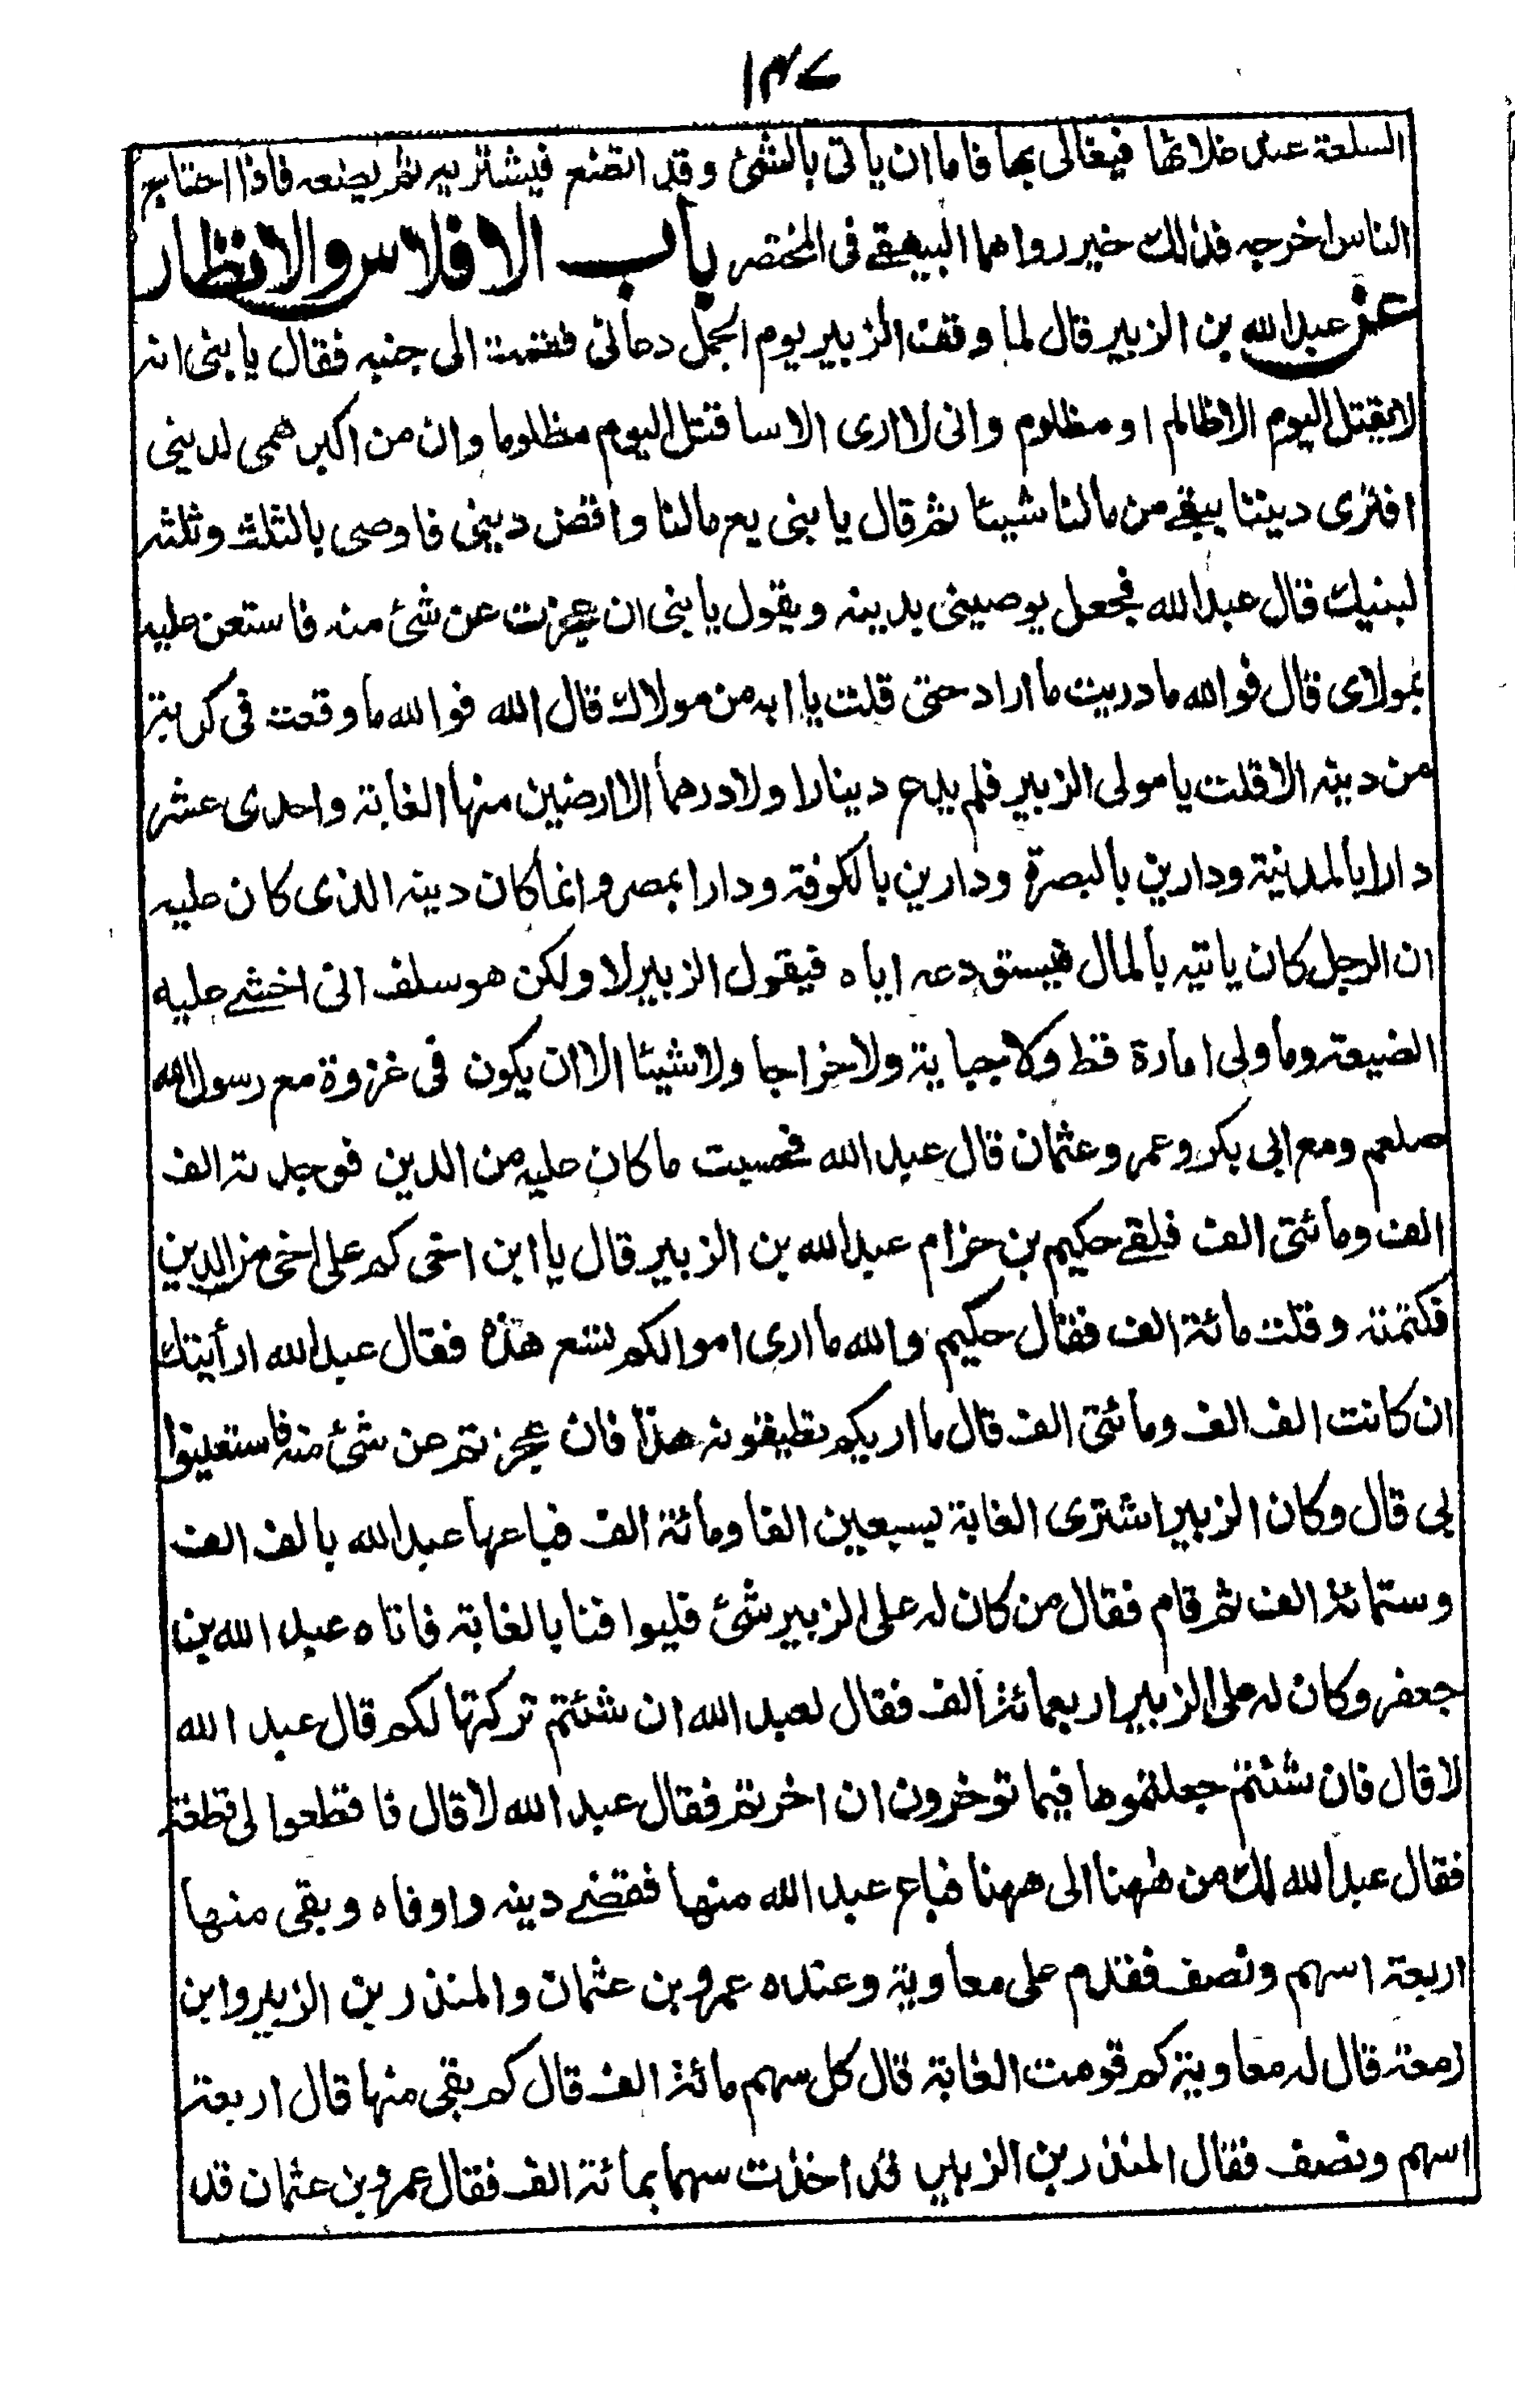 ١٣٧
السلعة عند غلائها فيغالى بها فاما ان ياتى بالشئ وقد اتضع فيشتريه ثم يضعه فاذا احتاج
الناس اخرجه فذلك خير رواهما البيهقے فى المختصر باب الافلاس والانظار
عن عبد الله بن الزبير قال لما وقف الزبير يوم الجمل دعانى فقمت الى جنبه فقال يا بنى انه
لا يقتل اليوم الا ظالم او مظلوم وانى لا ارى الا ساقتل اليوم مظلوما وان من اكبر همى لدينى
افترى ديننا يبقے من مالنا شيئا ثم قال يا بنى بع مالنا واقض دينى فاوصى بالثلث وثلثه
لبنيك قال عبد الله فجعل يوصينى بدينه ويقول يا بنى ان عجزت عن شئ منه فاستعن عليه
بمولاى قال فوالله ما دريت ما اراد حتى قلت يا ابه من مولاك قال الله فوالله ما وقعت فى كربة
من دينه الا قلت يا مولى الزبير فلم يدع دينارا ولا درهما الا ارضين منها الغابة واحدى عشر
دارا بالمدينة ودارين بالبصرة ودارين بالكوفة ودارا بمصر وانما كان دينه الذى كان عليه
ان الرجل كان ياتيه بالمال فيستودعه اياه فيقول الزبير لا ولكن هو سلف انى اخشے عليه
الضيعة وما ولى امارة قط ولا جباية ولا خراجا ولا شيئا الا ان يكون فى غزوة مع رسول الله
صلعم ومع ابى بكر وعمر وعثمان قال عبد الله فحسبت ما كان عليه من الدين فوجدته الف
الف ومائتى الف فلقے حكيم بن حزام عبد الله بن الزبير قال يا ابن اخى كم على اخى من الدين
فكتمته وقلت مائة الف فقال حكيم والله ما ارى اموالكم تسع هذه فقال عبد الله ارأيتك
ان كانت الف الف ومائتى الف قال ما اريكم تطيقونه هذا فان عجزتم عن شئ منه فاستعينوا
بى قال وكان الزبير اشترى الغابة بسبعين الفا ومائة الف فباعها عبد الله بالف الف
وستمائة الف ثم قام فقال من كان له على الزبير شئ فليوافنا بالغابة فاتاه عبد الله بن
جعفر وكان له على الزبير اربعمائة الف فقال لعبد الله ان شئتم تركتها لكم قال عبد الله
لا قال فان شئتم جعلتموها فيما توخرون ان اخرتم فقال عبد الله لا قال فاقطعوا لى قطعة
فقال عبد الله لك من ههنا الى ههنا فباع عبد الله منها فقضے دينه واوفاه وبقى منها
اربعة اسهم ونصف فقدم على معاوية وعنده عمرو بن عثمان والمنذر بن الزبير وابن
زمعة قال له معاوية كم قومت الغابة قال كل سهم مائة الف قال كم بقى منها قال اربعة
اسهم ونصف فقال المنذر بن الزبير قد اخذت سهما بمائة الف فقال عمرو بن عثمان قد